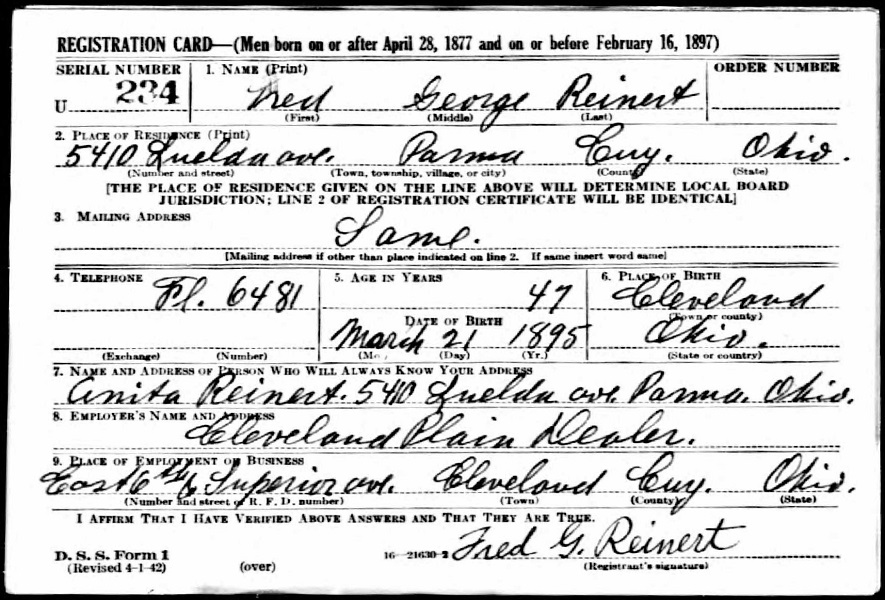 REGISTRATION CARD—(Men born on or after April 28, 1877 and on or before February 16, 1897)
SERIAL NUMBER 1. NAME (Print) ORDER NUMBER
U 234 Fred George Reinert
(First) (Middle) (Last)
2. PLACE OF RESIDENCE (Print)
5410 Luelda ave. Parma Cuy. Ohio.
(Number and street) (Town, township, village, or city) (County) (State)
[THE PLACE OF RESIDENCE GIVEN ON THE LINE ABOVE WILL DETERMINE LOCAL BOARD
JURISDICTION; LINE 2 OF REGISTRATION CERTIFICATE WILL BE IDENTICAL]
3. MAILING ADDRESS
Same.
[Mailing address if other than place indicated on line 2. If same insert word same]
4. TELEPHONE 5. AGE IN YEARS 6. PLACE OF BIRTH
Fl. 6481 47 Cleveland
DATE OF BIRTH (Town or county)
March 21 1895 Ohio.
(Exchange) (Number) (Mo.) (Day) (Yr.) (State or country)
7. NAME AND ADDRESS OF PERSON WHO WILL ALWAYS KNOW YOUR ADDRESS
Anita Reinert. 5410 Luelda ave. Parma. Ohio.
8. EMPLOYER'S NAME AND ADDRESS
Cleveland Plain Dealer.
9. PLACE OF EMPLOYMENT OR BUSINESS
East 6th & Superior ave. Cleveland Cuy. Ohio.
(Number and street or R. F. D. number) (Town) (County) (State)
I AFFIRM THAT I HAVE VERIFIED ABOVE ANSWERS AND THAT THEY ARE TRUE.
D. S. S. Form 1 16—21630-2 Fred G. Reinert
(Revised 4-1-42) (over) (Registrant's signature)